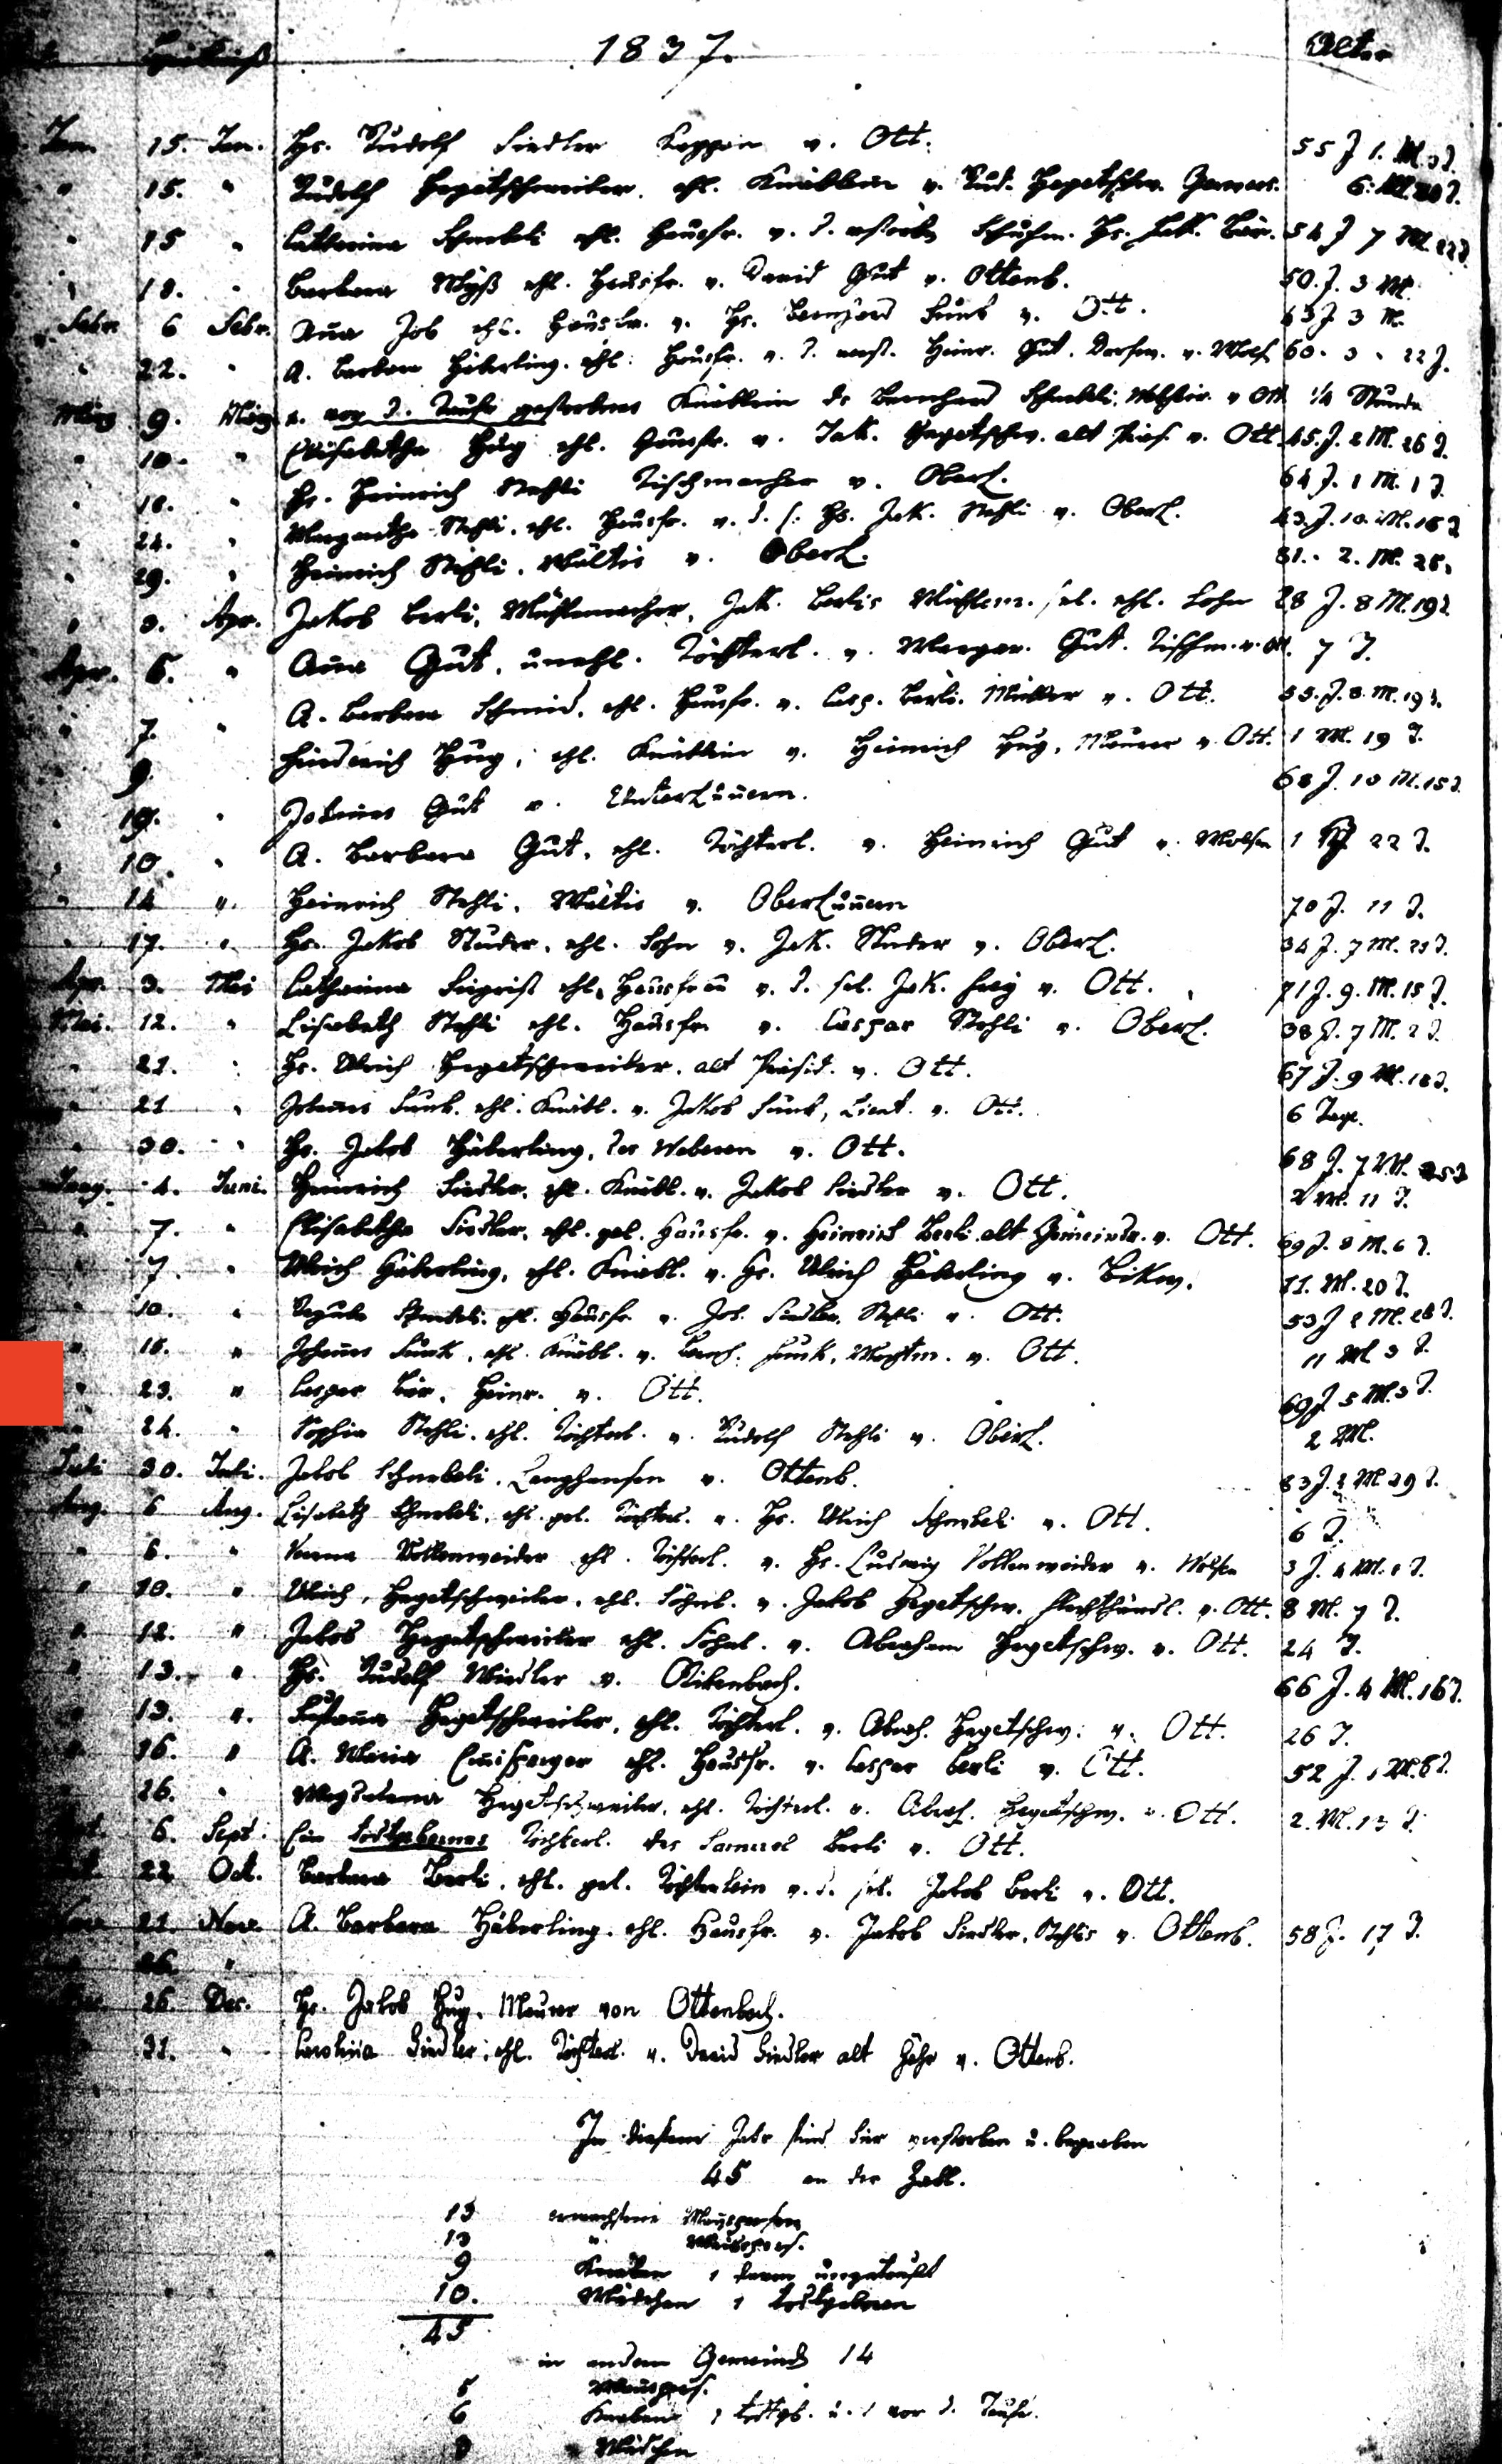 1837. Alter
Jan. 15. Jan. Hs. Rudolf Siedler Keppen v. Ott. 55 J 1. M. 3 T.
" 15. " Rudolf Hegetschweiler. ehl. Knäblein v. Rud. Hegetschw. 6. M. 20 T.
" 15 " Catharina Schnebeli ehl. Hausfr. v. d. verstorb. Schuhm. Hs. Jak. Bär. 54 J 7 M. 22 T.
" 18. " Barbara Wyß ehl. Hausfr. v. David Gut v. Ottenb. 50. J. 3 M.
Febr. 6 Febr. Anna Job ehl. Hausfr. v. Hs. Bernhard Funk v. Ott. 63 J 3 M.
" 22. " A. Barbara Häberling. ehl. Hausfr. v. d. verst. Heinr. Gut. v. Wols. 60. 3 " 22 T.
März 9. März e. vor d. Taufe gestorbenes Knäblein des Bernhard Schnebeli, v Ott 1/4 Stunde
" 10. " Elisabetha Hug ehl. Hausfr. v. Jak. Hegetschw. alt Präs. v. Ott. 45. J. 2 M. 26 T.
" 18. " Hs. Heinrich Stehli Tischmacher v. Oberl. 64 J. 1 M. 1 T.
" 24. " Margaretha Stehli, ehl. Hausfr. v. d. s. Hs. Jak. Stehli v. Oberl. 43. J. 10. M. 18 T
" 29. " Heinrich Stehli. Wältis v. Oberl. 81. " 2. M. 28.
" 3. Apr. Jakob Berli, Mühlemacher, Jak. Berlis Mühlem. sel. ehl. Sohn 28 J. 8 M. 19 T.
Apr. 6. " Anna Gut. unehl. Töchterl. v. Margar. Gut. Tischm. v. Ott. 7 T.
" 7. " A. Barbara Schmid. ehl. Hausfr. v. Casp. Berli. Müller v. Ott. 55. J. 8. M. 19 T.
" 9. Friederich Hug, ehl. Knäblein v. Heinrich Hug, Maurer v. Ott. 1 M. 19 T.
" 19. " Johannes Gut v. Unterluñern. 68 J. 10 M. 15 T.
" 10. " A. Barbara Gut. ehl. Töchterl. v. Heinrich Gut v. Wolsen 1 J 22 T.
" 14 " Heinrich Stehli. Wältis v. Oberluñern 70 J. 11 T.
" 17. " Hs. Jakob Studer. ehl. Sohn v. Jak. Studer v. Oberl. 34 J. 7 M. 25 T.
Apr. 3. Mai Catharina Siegrist ehl. Hausfrau v. d. sel. Jak. Frey v. Ott. 71 J. 9. M. 15 T.
Mai. 12. " Lisabeth Stehli ehl. Hausfr. v. Caspar Stehli v. Oberl. 38 J. 7 M. 2 T.
" 21. " Hs. Ulrich Hegetschweiler. alt Präsid. v. Ott. 67 J. 9 M. 18 T.
" 21 " Johannes Funk. ehl. Knäbl. v. Jakob Funk, Lieut. v. Ott. 6 Tage.
" 30. " Hs. Jakob Häberling, des Weberen v. Ott. 68 J. 7 M. 25 T
4. Juni. Heinrich Siedler. ehl. Knäbl. v. Jakob Siedler v. Ott. 2 M. 11 T.
" 7. " Elisabetha Siedler, ehl. gel. Hausfr. v. Heinrich Berli alt Gemeindr. v. Ott. 69 J. 8 M. 6 T.
" 7. " Ulrich Häberling, ehl. Knäbl. v. Hs. Ulrich Häberling v. Bikw. 11. M. 20 T.
" 10. " Regula Schnebeli. ehl. Hausfr. v. Joh. Siedler. Stehli v. Ott. 53 J 2 M. 28 T.
" 18. " Johannes Funk, ehl. Knäbl. v. Bernh. Funk, Wachtm. v. Ott. 11 M 3 T.
" 23. " Caspar Bär, Heinr. v. Ott. 69 J 5 M. 3 T.
" 24. " Sophia Stehli. ehl. Töchterl. v. Rudolf Stehli v. Oberl. 2 M.
Juli 30. Juli. Jakob Schnebeli. Langhansen v. Ottenb. 83 J. 2 M. 29 T.
Aug. 6 Aug. Lisabeth Schnebeli, ehl. gel. Töchterl. v. Hs. Ulrich Schnebeli v. Ott. 6 T.
" 6. " Verena Vollenweider ehl. Töchterl. v. Hs. Ludwig Vollenweider v. Wolsen 3 J. 4 M. 2 T.
" 10. " Ulrich, Hegetschweiler. ehl. Söhnl. v. Jakob Hegetschw. v. Ott. 8 M. 7 T.
" 12. " Jakob Hegetschweiler ehl. Söhnl. v. Abraham Hegetschw. v. Ott. 24 T.
" 13. " Hs. Rudolf Wiedler v. Rikenbach. 66 J. 4 M. 16 T.
" 13. " Susanna Hegetschweiler, ehl. Töchterl. v. Abrah. Hegetschw. v. Ott. 26 T.
" 16. " A. Maria ehl. Hausfr. v. Caspar Berli v. Ott. 52 J. 1 M. 8 T.
" 26. " Magdalena Hegetschweiler. ehl. Töchterl. v. Abrah. Hegetschw. v. Ott. 2. M. 13 T.
6. Sept. Ein todtgebornes Töchterl. des Samuel Berli v. Ott.
22 Oct. Barbara Berli. ehl. gel. Töchterlein v. d. sel. Jakob Berli v. Ott.
21. Nov. A. Barbara Häberling. ehl. Hausfr. v. Jakob Siedler. Stehlis v. Ottenb. 58 J. 17 T.
26. "
26. Dec. Hs. Jakob Hug. Maurer von Ottenbach.
31. " Carolina Siedler, ehl. Töchterl. v. David Siedler alt v. Ottenb.
In diesem Jahr sind hier verstorben u. begraben
45 an der Zahl.
13 erwachsene Mañspersonen
13 " Weibspers.
9 Knaben 1 davon ungetauft
10. Mädchen 1 todtgeboren
45
in andern Gemeinds 14
5
6 Knaben 1 todtgb. u. 1 vor d. Taufe.
3 Mädchen